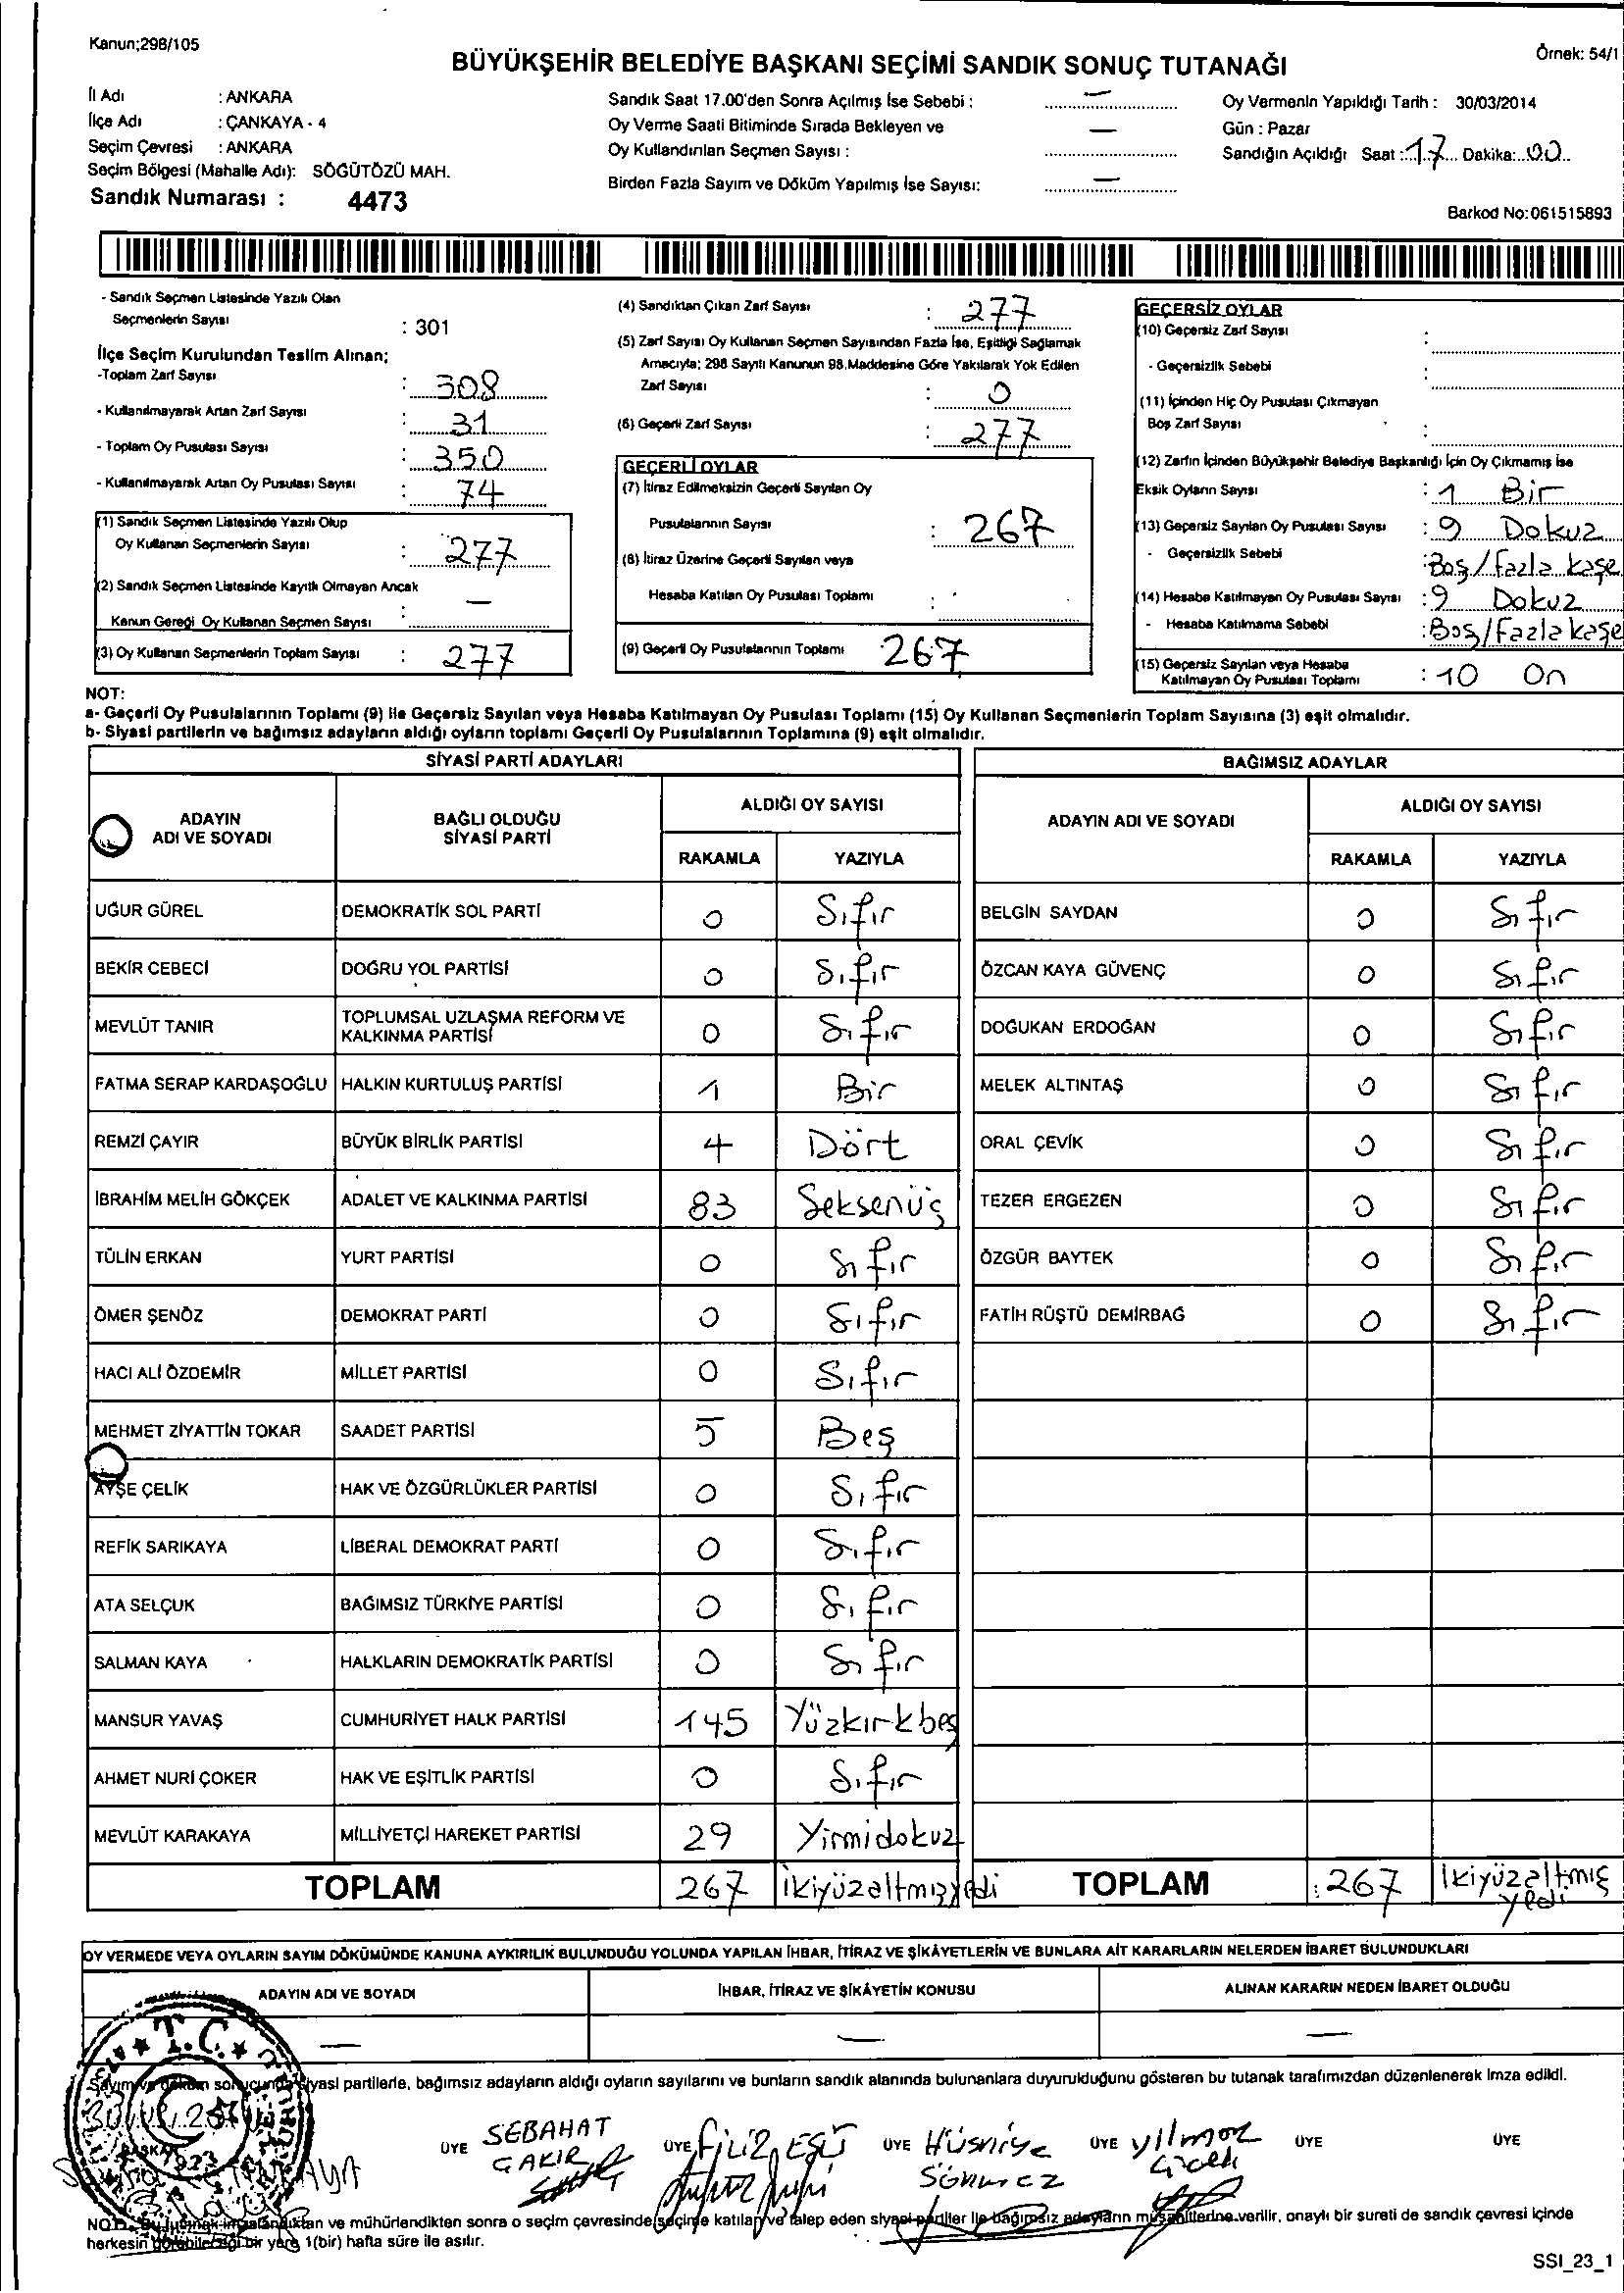 Kanun;298/105
Örnek: 54/1
BÜYÜKŞEHİR BELEDİYE BAŞKANI SEÇİMİ SANDIK SONUÇ TUTANAĞI
İl Adı : ANKARA
İlçe Adı : ÇANKAYA - 4
Seçim Çevresi : ANKARA
Seçim Bölgesi (Mahalle Adı): SÖĞÜTÖZÜ MAH.
Sandık Numarası : 4473
Sandık Saat 17.00'den Sonra Açılmış İse Sebebi : —
Oy Verme Saati Bitiminde Sırada Bekleyen ve
Oy Kullandırılan Seçmen Sayısı : —
Birden Fazla Sayım ve Döküm Yapılmış İse Sayısı: —
Oy Vermenin Yapıldığı Tarih : 30/03/2014
Gün : Pazar
Sandığın Açıldığı Saat : 17 Dakika: 00
Barkod No:061515893
- Sandık Seçmen Listesinde Yazılı Olan
Seçmenlerin Sayısı : 301
İlçe Seçim Kurulundan Teslim Alınan;
-Toplam Zarf Sayısı : 308
- Kullanılmayarak Artan Zarf Sayısı : 31
- Toplam Oy Pusulası Sayısı : 350
- Kullanılmayarak Artan Oy Pusulası Sayısı : 74
(1) Sandık Seçmen Listesinde Yazılı Olup
Oy Kullanan Seçmenlerin Sayısı : 277
(2) Sandık Seçmen Listesinde Kayıtlı Olmayan Ancak
Kanun Gereği Oy Kullanan Seçmen Sayısı : —
(3) Oy Kullanan Seçmenlerin Toplam Sayısı : 277
(4) Sandıktan Çıkan Zarf Sayısı : 277
(5) Zarf Sayısı Oy Kullanan Seçmen Sayısından Fazla İse, Eşitliği Sağlamak
Amacıyla; 298 Sayılı Kanunun 98.Maddesine Göre Yakılarak Yok Edilen
Zarf Sayısı : 0
(6) Geçerli Zarf Sayısı : 277
GEÇERLİ OYLAR
(7) İtiraz Edilmeksizin Geçerli Sayılan Oy
Pusulalarının Sayısı : 267
(8) İtiraz Üzerine Geçerli Sayılan veya
Hesaba Katılan Oy Pusulası Toplamı :
(9) Geçerli Oy Pusulalarının Toplamı : 267
GEÇERSİZ OYLAR
(10) Geçersiz Zarf Sayısı :
- Geçersizlik Sebebi :
(11) İçinden Hiç Oy Pusulası Çıkmayan
Boş Zarf Sayısı :
(12) Zarfın İçinden Büyükşehir Belediye Başkanlığı İçin Oy Çıkmamış İse
Eksik Oyların Sayısı : 1 Bir
(13) Geçersiz Sayılan Oy Pusulası Sayısı : 9 Dokuz
- Geçersizlik Sebebi : Boş/fazla kaşe
(14) Hesaba Katılmayan Oy Pusulası Sayısı : 9 Dokuz
- Hesaba Katılmama Sebebi : Boş/Fazla kaşe
(15) Geçersiz Sayılan veya Hesaba
Katılmayan Oy Pusulası Toplamı : 10 On
NOT:
a- Geçerli Oy Pusulalarının Toplamı (9) ile Geçersiz Sayılan veya Hesaba Katılmayan Oy Pusulası Toplamı (15) Oy Kullanan Seçmenlerin Toplam Sayısına (3) eşit olmalıdır.
b- Siyasi partilerin ve bağımsız adayların aldığı oyların toplamı Geçerli Oy Pusulalarının Toplamına (9) eşit olmalıdır.
SİYASİ PARTİ ADAYLARI
ADAYIN ADI VE SOYADI BAĞLI OLDUĞU SİYASİ PARTİ ALDIĞI OY SAYISI
RAKAMLA YAZIYLA
UĞUR GÜREL DEMOKRATİK SOL PARTİ 0 Sıfır
BEKİR CEBECİ DOĞRU YOL PARTİSİ 0 Sıfır
MEVLÜT TANIR TOPLUMSAL UZLAŞMA REFORM VE KALKINMA PARTİSİ 0 Sıfır
FATMA SERAP KARDAŞOĞLU HALKIN KURTULUŞ PARTİSİ 1 Bir
REMZİ ÇAYIR BÜYÜK BİRLİK PARTİSİ 4 Dört
İBRAHİM MELİH GÖKÇEK ADALET VE KALKINMA PARTİSİ 83 Seksenüç
TÜLİN ERKAN YURT PARTİSİ 0 Sıfır
ÖMER ŞENÖZ DEMOKRAT PARTİ 0 Sıfır
HACI ALİ ÖZDEMİR MİLLET PARTİSİ 0 Sıfır
MEHMET ZİYATTİN TOKAR SAADET PARTİSİ 5 Beş
AYŞE ÇELİK HAK VE ÖZGÜRLÜKLER PARTİSİ 0 Sıfır
REFİK SARIKAYA LİBERAL DEMOKRAT PARTİ 0 Sıfır
ATA SELÇUK BAĞIMSIZ TÜRKİYE PARTİSİ 0 Sıfır
SALMAN KAYA HALKLARIN DEMOKRATİK PARTİSİ 0 Sıfır
MANSUR YAVAŞ CUMHURİYET HALK PARTİSİ 145 Yüzkırkbeş
AHMET NURİ ÇOKER HAK VE EŞİTLİK PARTİSİ 0 Sıfır
MEVLÜT KARAKAYA MİLLİYETÇİ HAREKET PARTİSİ 29 Yirmidokuz
TOPLAM 267 İkiyüzaltmışyedi
BAĞIMSIZ ADAYLAR
ADAYIN ADI VE SOYADI ALDIĞI OY SAYISI
RAKAMLA YAZIYLA
BELGİN SAYDAN 0 Sıfır
ÖZCAN KAYA GÜVENÇ 0 Sıfır
DOĞUKAN ERDOĞAN 0 Sıfır
MELEK ALTINTAŞ 0 Sıfır
ORAL ÇEVİK 0 Sıfır
TEZER ERGEZEN 0 Sıfır
ÖZGÜR BAYTEK 0 Sıfır
FATİH RÜŞTÜ DEMİRBAĞ 0 Sıfır
TOPLAM : 267 İkiyüzaltmış yedi
OY VERMEDE VEYA OYLARIN SAYIM DÖKÜMÜNDE KANUNA AYKIRILIK BULUNDUĞU YOLUNDA YAPILAN İHBAR, İTİRAZ VE ŞİKÂYETLERİN VE BUNLARA AİT KARARLARIN NELERDEN İBARET BULUNDUKLARI
ADAYIN ADI VE SOYADI İHBAR, İTİRAZ VE ŞİKÂYETİN KONUSU ALINAN KARARIN NEDEN İBARET OLDUĞU
— — —
Sayım ve döküm sonucunda siyasi partilerle, bağımsız adayların aldığı oyların sayılarını ve bunların sandık alanında bulunanlara duyurulduğunu gösteren bu tutanak tarafımızdan düzenlenerek imza edildi.
T.C.
BAŞKAN
ÜYE SEBAHAT ÇAKIR
ÜYE FİLİZ EŞÜ
ÜYE Hüsniye SÖNMEZ
ÜYE yılmaz
ÜYE
ÜYE
NOT: Bu tutanak imzalandıktan ve mühürlendikten sonra o seçim çevresinde seçime katılan ve talep eden siyasi partiler ile bağımsız adayların müşahitlerine verilir, onaylı bir sureti de sandık çevresi içinde
herkesin görebileceği bir yere 1(bir) hafta süre ile asılır.
SSI_23_1